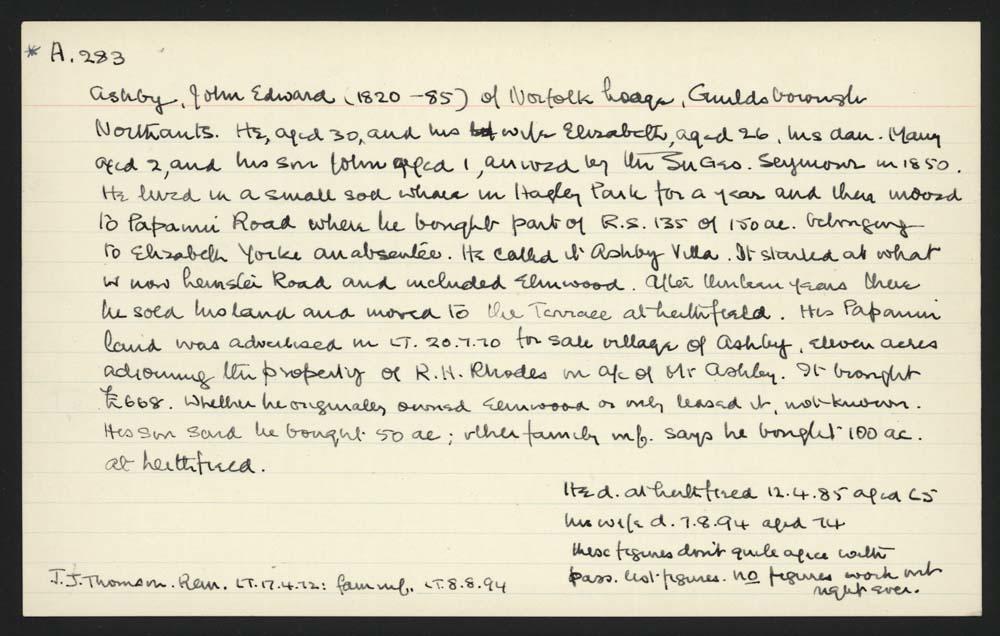 * A.283
Ashby, John Edward (1820–85) of Norfolk Lodge, Guildsborough
Northants. He, aged 30, and his wife Elizabeth, aged 26, his dau. Mary
aged 2, and his son John aged 1, arrived by the Sir Geo. Seymour in 1850.
He lived in a small sod whare in Hagley Park for a year and then moved
to Papanui Road where he bought part of R.S. 135 of 150 ac. belonging
to Elizabeth Yorke an absentee. He called it Ashby Villa. It started at what
is now Leinster Road and included Elmwood. After thirteen years there
he sold his land and moved to the Terrace at Leithfield. His Papanui
land was advertised in LT. 20.7.70 for sale village of Ashby, eleven acres
adjoining the property of R.H. Rhodes on a/c of Mr Ashby. It brought
£668. Whether he originally owned Elmwood or only leased it, not known.
His son said he bought 50 ac; other family inf. says he bought 100 ac.
at Leithfield.
He d. at Leithfield 12.4.85 aged 65
his wife d. 7.8.94 aged 74
these figures don't quite agree with
pass. list figures. no figures work out
right ever.
J.J. Thomson. Rem. LT. 17.4.72: fam inf. LT. 8.8.94